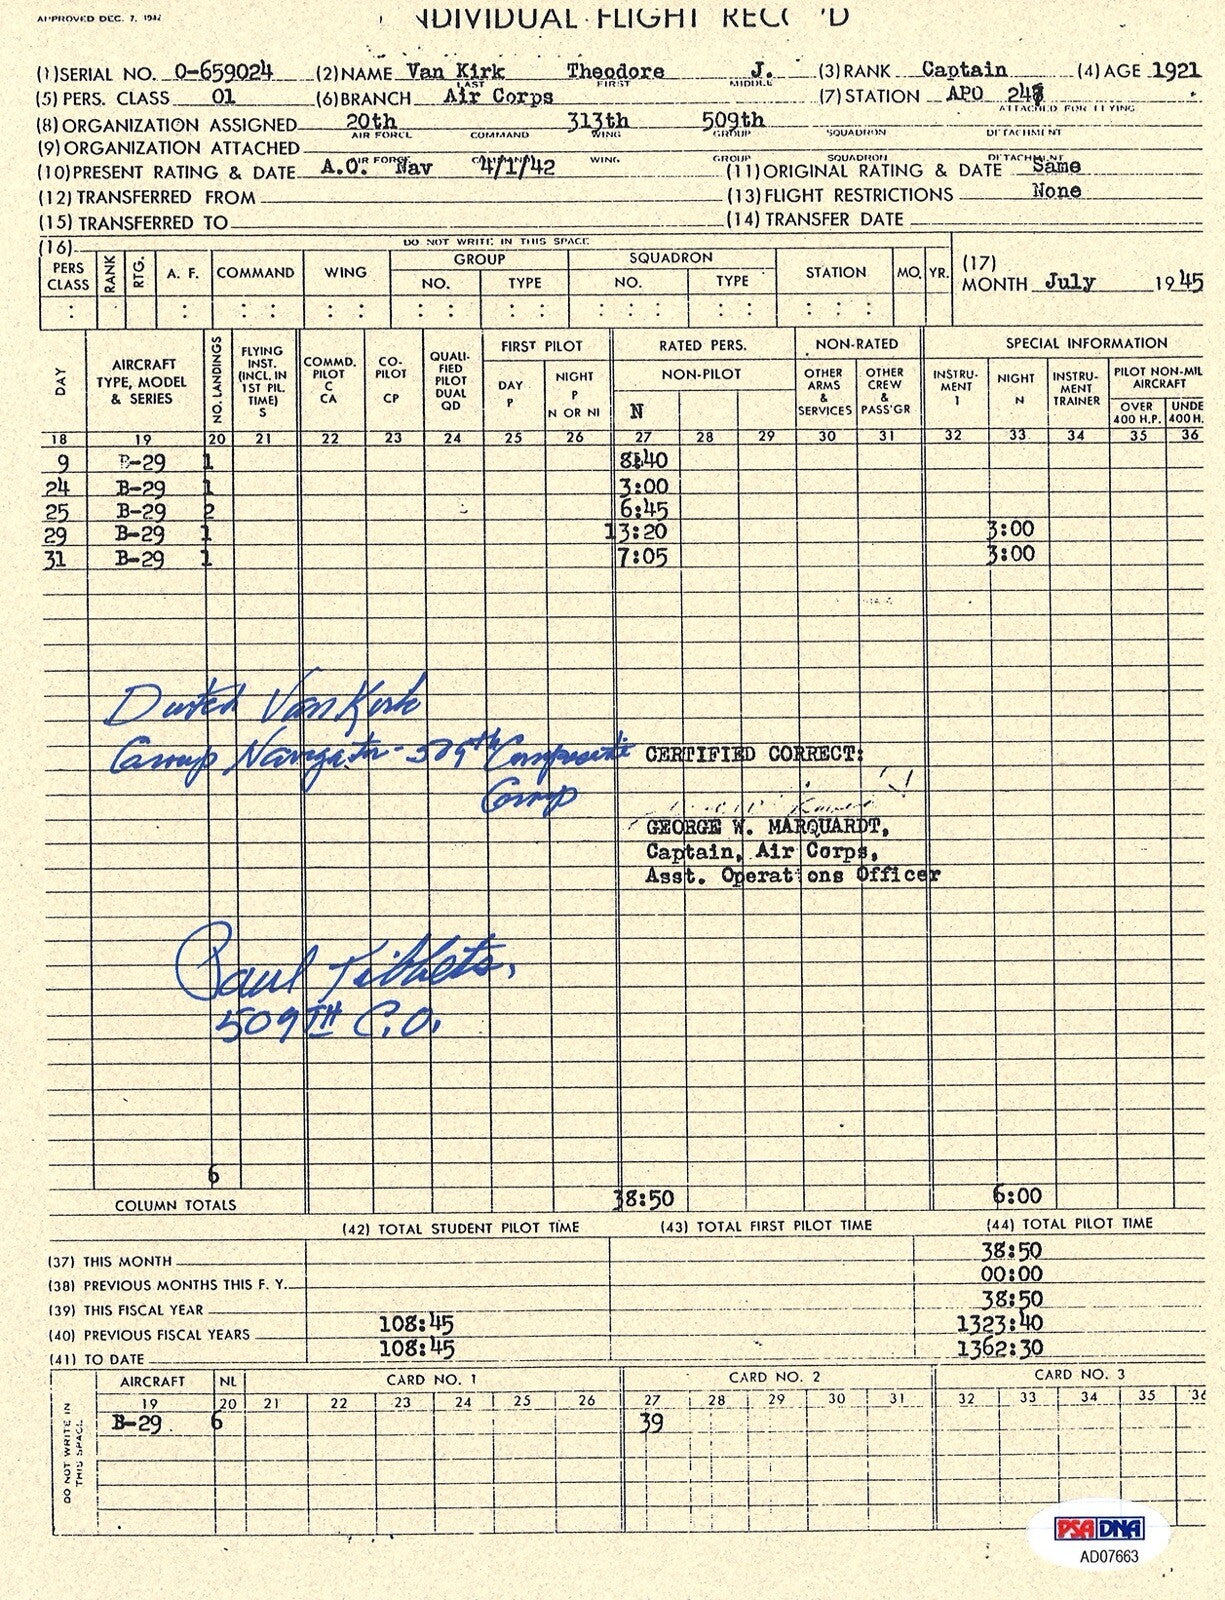 APPROVED DEC. 7, 1942
NDIVIDUAL FLIGHT REC D
(1) SERIAL NO. 0-659024 (2) NAME Van Kirk Theodore J. (3) RANK Captain (4) AGE 1921
LAST FIRST MIDDLE
(5) PERS. CLASS 01 (6) BRANCH Air Corps (7) STATION APO 247
ATTACHED FOR FLYING
(8) ORGANIZATION ASSIGNED 20th 313th 509th
AIR FORCE COMMAND WING GROUP SQUADRON DETACHMENT
(9) ORGANIZATION ATTACHED
AIR FORCE COMMAND WING GROUP SQUADRON DETACHMENT
(10) PRESENT RATING & DATE A.O. Nav 4/1/42 (11) ORIGINAL RATING & DATE Same
(12) TRANSFERRED FROM (13) FLIGHT RESTRICTIONS None
(15) TRANSFERRED TO (14) TRANSFER DATE
(16) DO NOT WRITE IN THIS SPACE
PERS CLASS RANK RTG. A. F. COMMAND WING GROUP NO. TYPE SQUADRON NO. TYPE STATION MO. YR. (17) MONTH July 1945
DAY AIRCRAFT TYPE, MODEL & SERIES NO. LANDINGS FLYING INST. (INCL. IN 1ST PIL. TIME) S COMMD. PILOT C CA CO-PILOT CP QUALI-FIED PILOT DUAL QD FIRST PILOT DAY P NIGHT P N OR NI RATED PERS. NON-PILOT N NON-RATED OTHER ARMS & SERVICES OTHER CREW & PASS'GR SPECIAL INFORMATION INSTRU-MENT I NIGHT N INSTRU-MENT TRAINER PILOT NON-MIL AIRCRAFT OVER 400 H.P. UNDE 400 H.
18 19 20 21 22 23 24 25 26 27 28 29 30 31 32 33 34 35 36
9 B-29 1 8:40
24 B-29 1 3:00
25 B-29 2 6:45
29 B-29 1 13:20 3:00
31 B-29 1 7:05 3:00
Dutch Van Kirk
Group Navigator - 509th Composite
Group
CERTIFIED CORRECT:
GEORGE W. MARQUARDT,
Captain, Air Corps,
Asst. Operations Officer
Paul Tibbets,
509TH C.O.
6
COLUMN TOTALS 38:50 6:00
(42) TOTAL STUDENT PILOT TIME (43) TOTAL FIRST PILOT TIME (44) TOTAL PILOT TIME
(37) THIS MONTH 38:50
(38) PREVIOUS MONTHS THIS F. Y. 00:00
(39) THIS FISCAL YEAR 38:50
(40) PREVIOUS FISCAL YEARS 108:45 1323:40
(41) TO DATE 108:45 1362:30
DO NOT WRITE IN THIS SPACE
AIRCRAFT NL CARD NO. 1 CARD NO. 2 CARD NO. 3
19 20 21 22 23 24 25 26 27 28 29 30 31 32 33 34 35 36
B-29 6 39
PSA DNA
AD07663